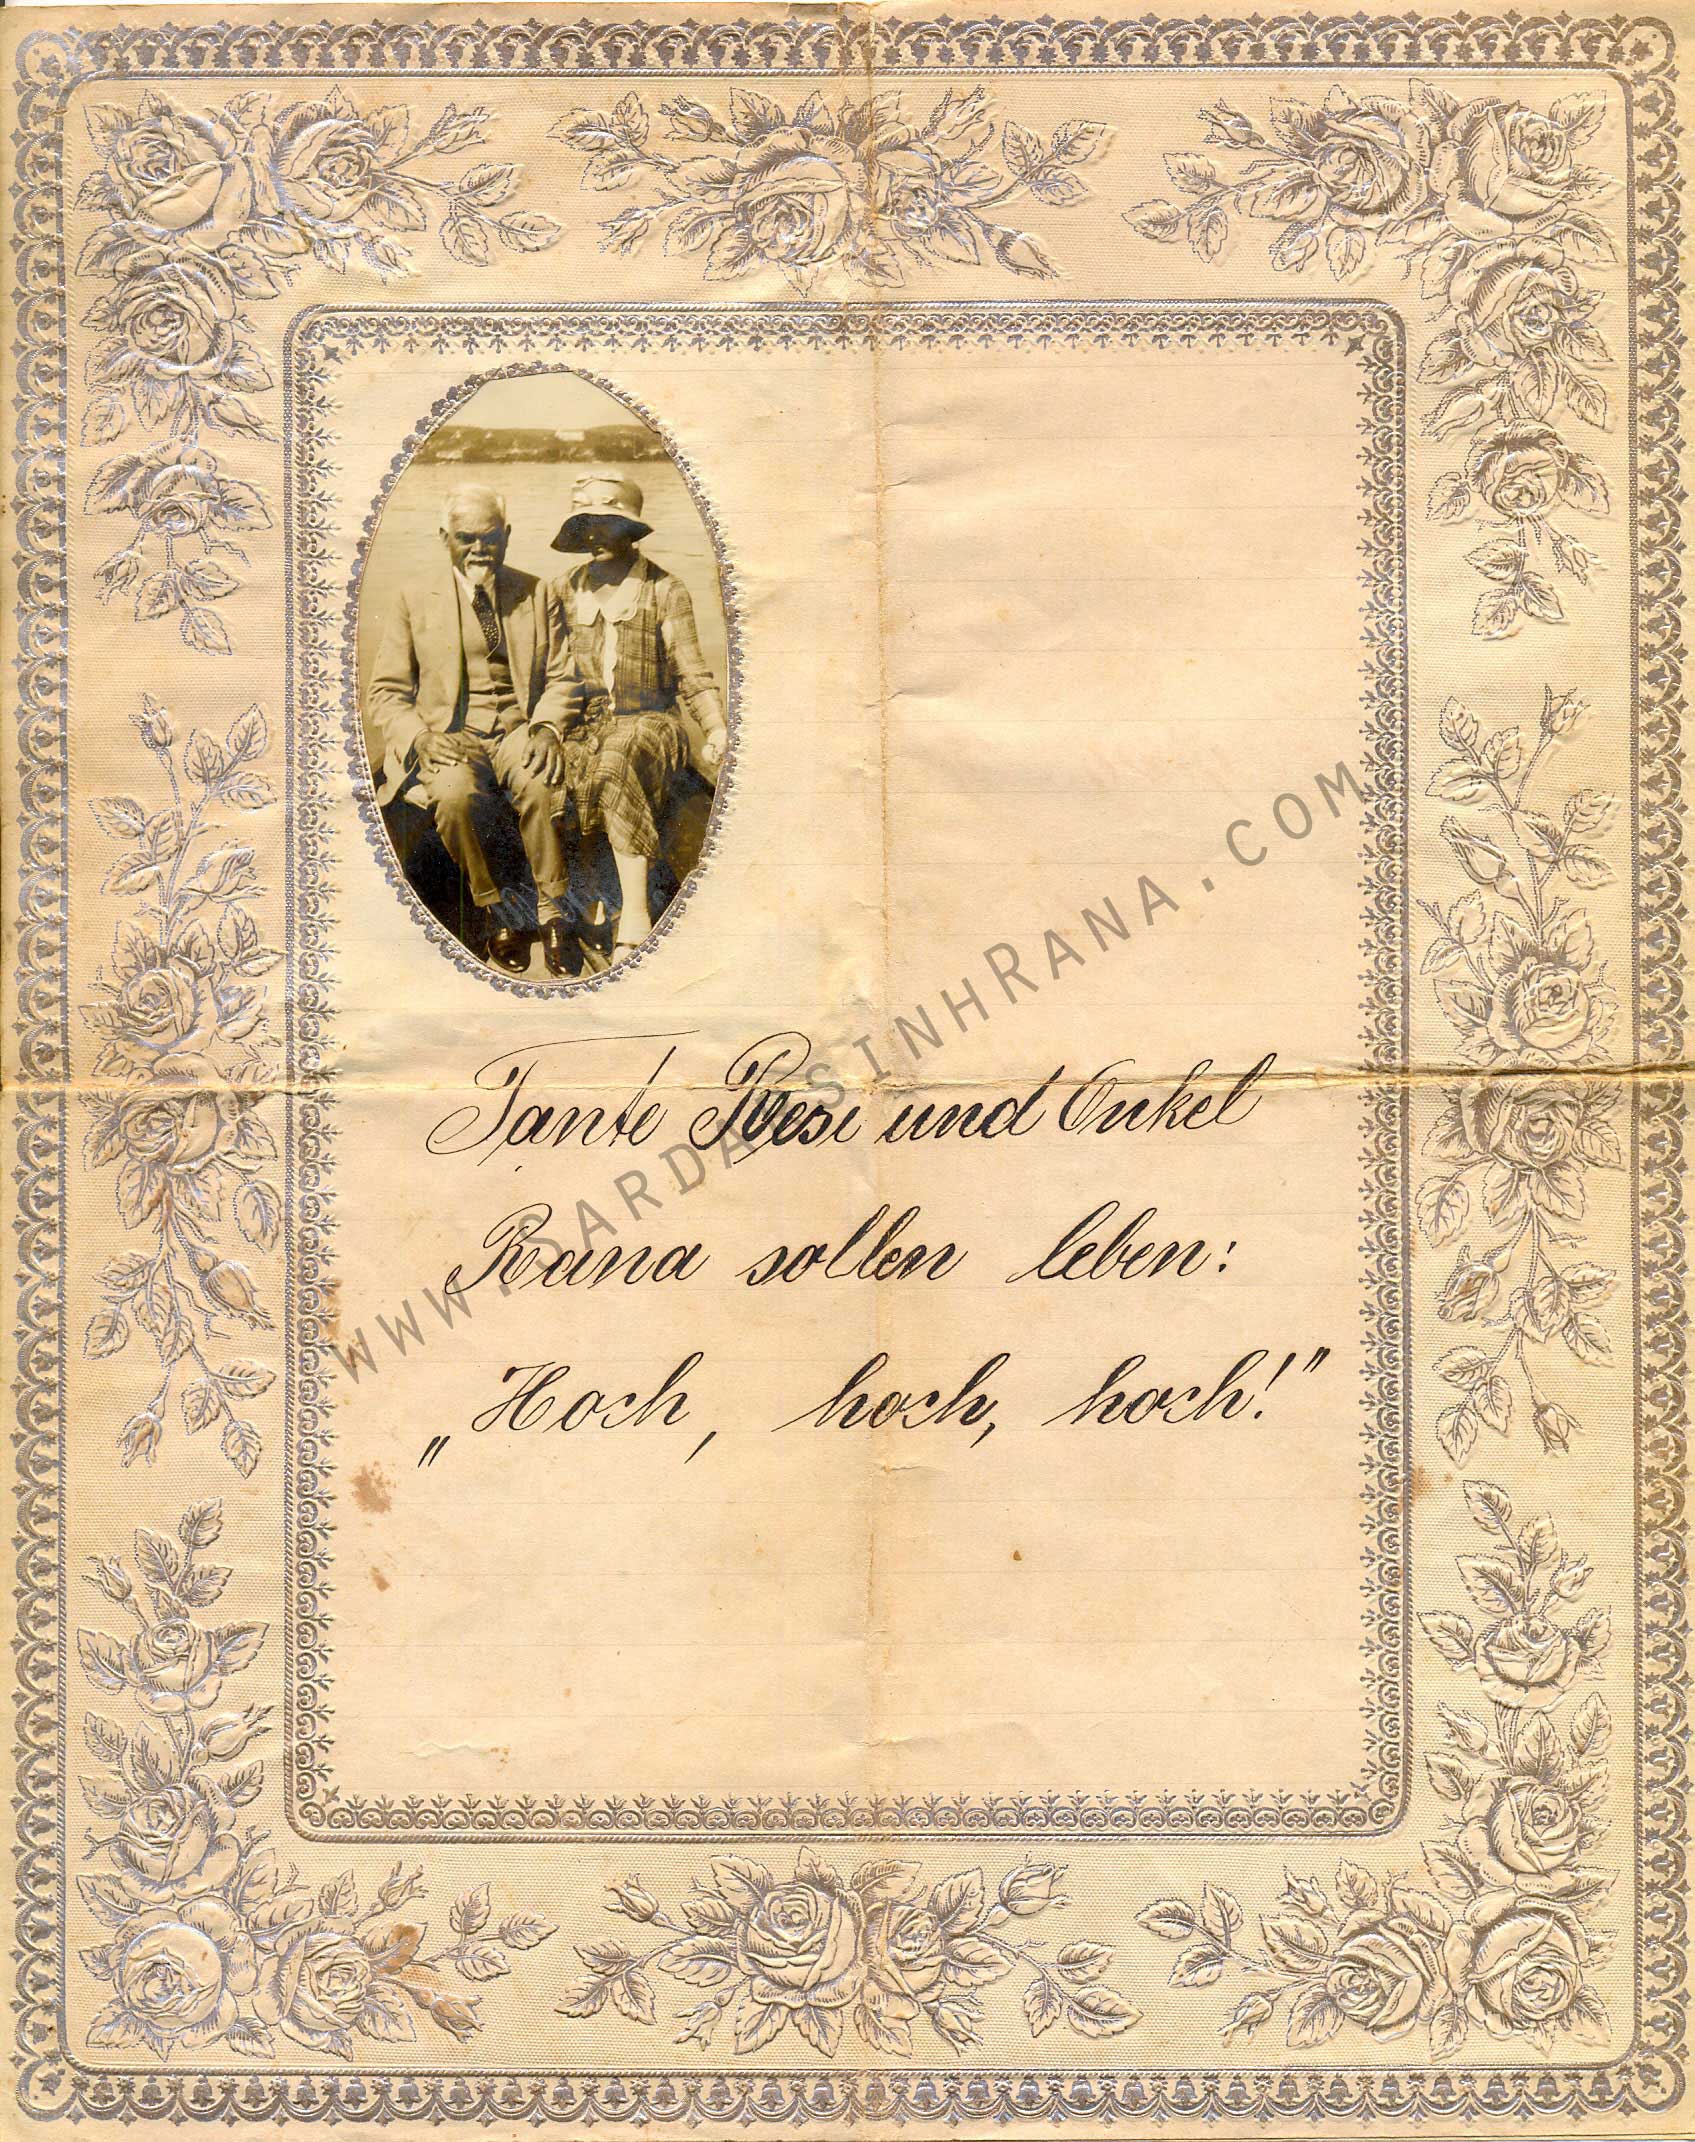 Tante Resi und Onkel
Rana sollen leben:
„Hoch, hoch, hoch!"
www.SARDARSINHRANA.COM